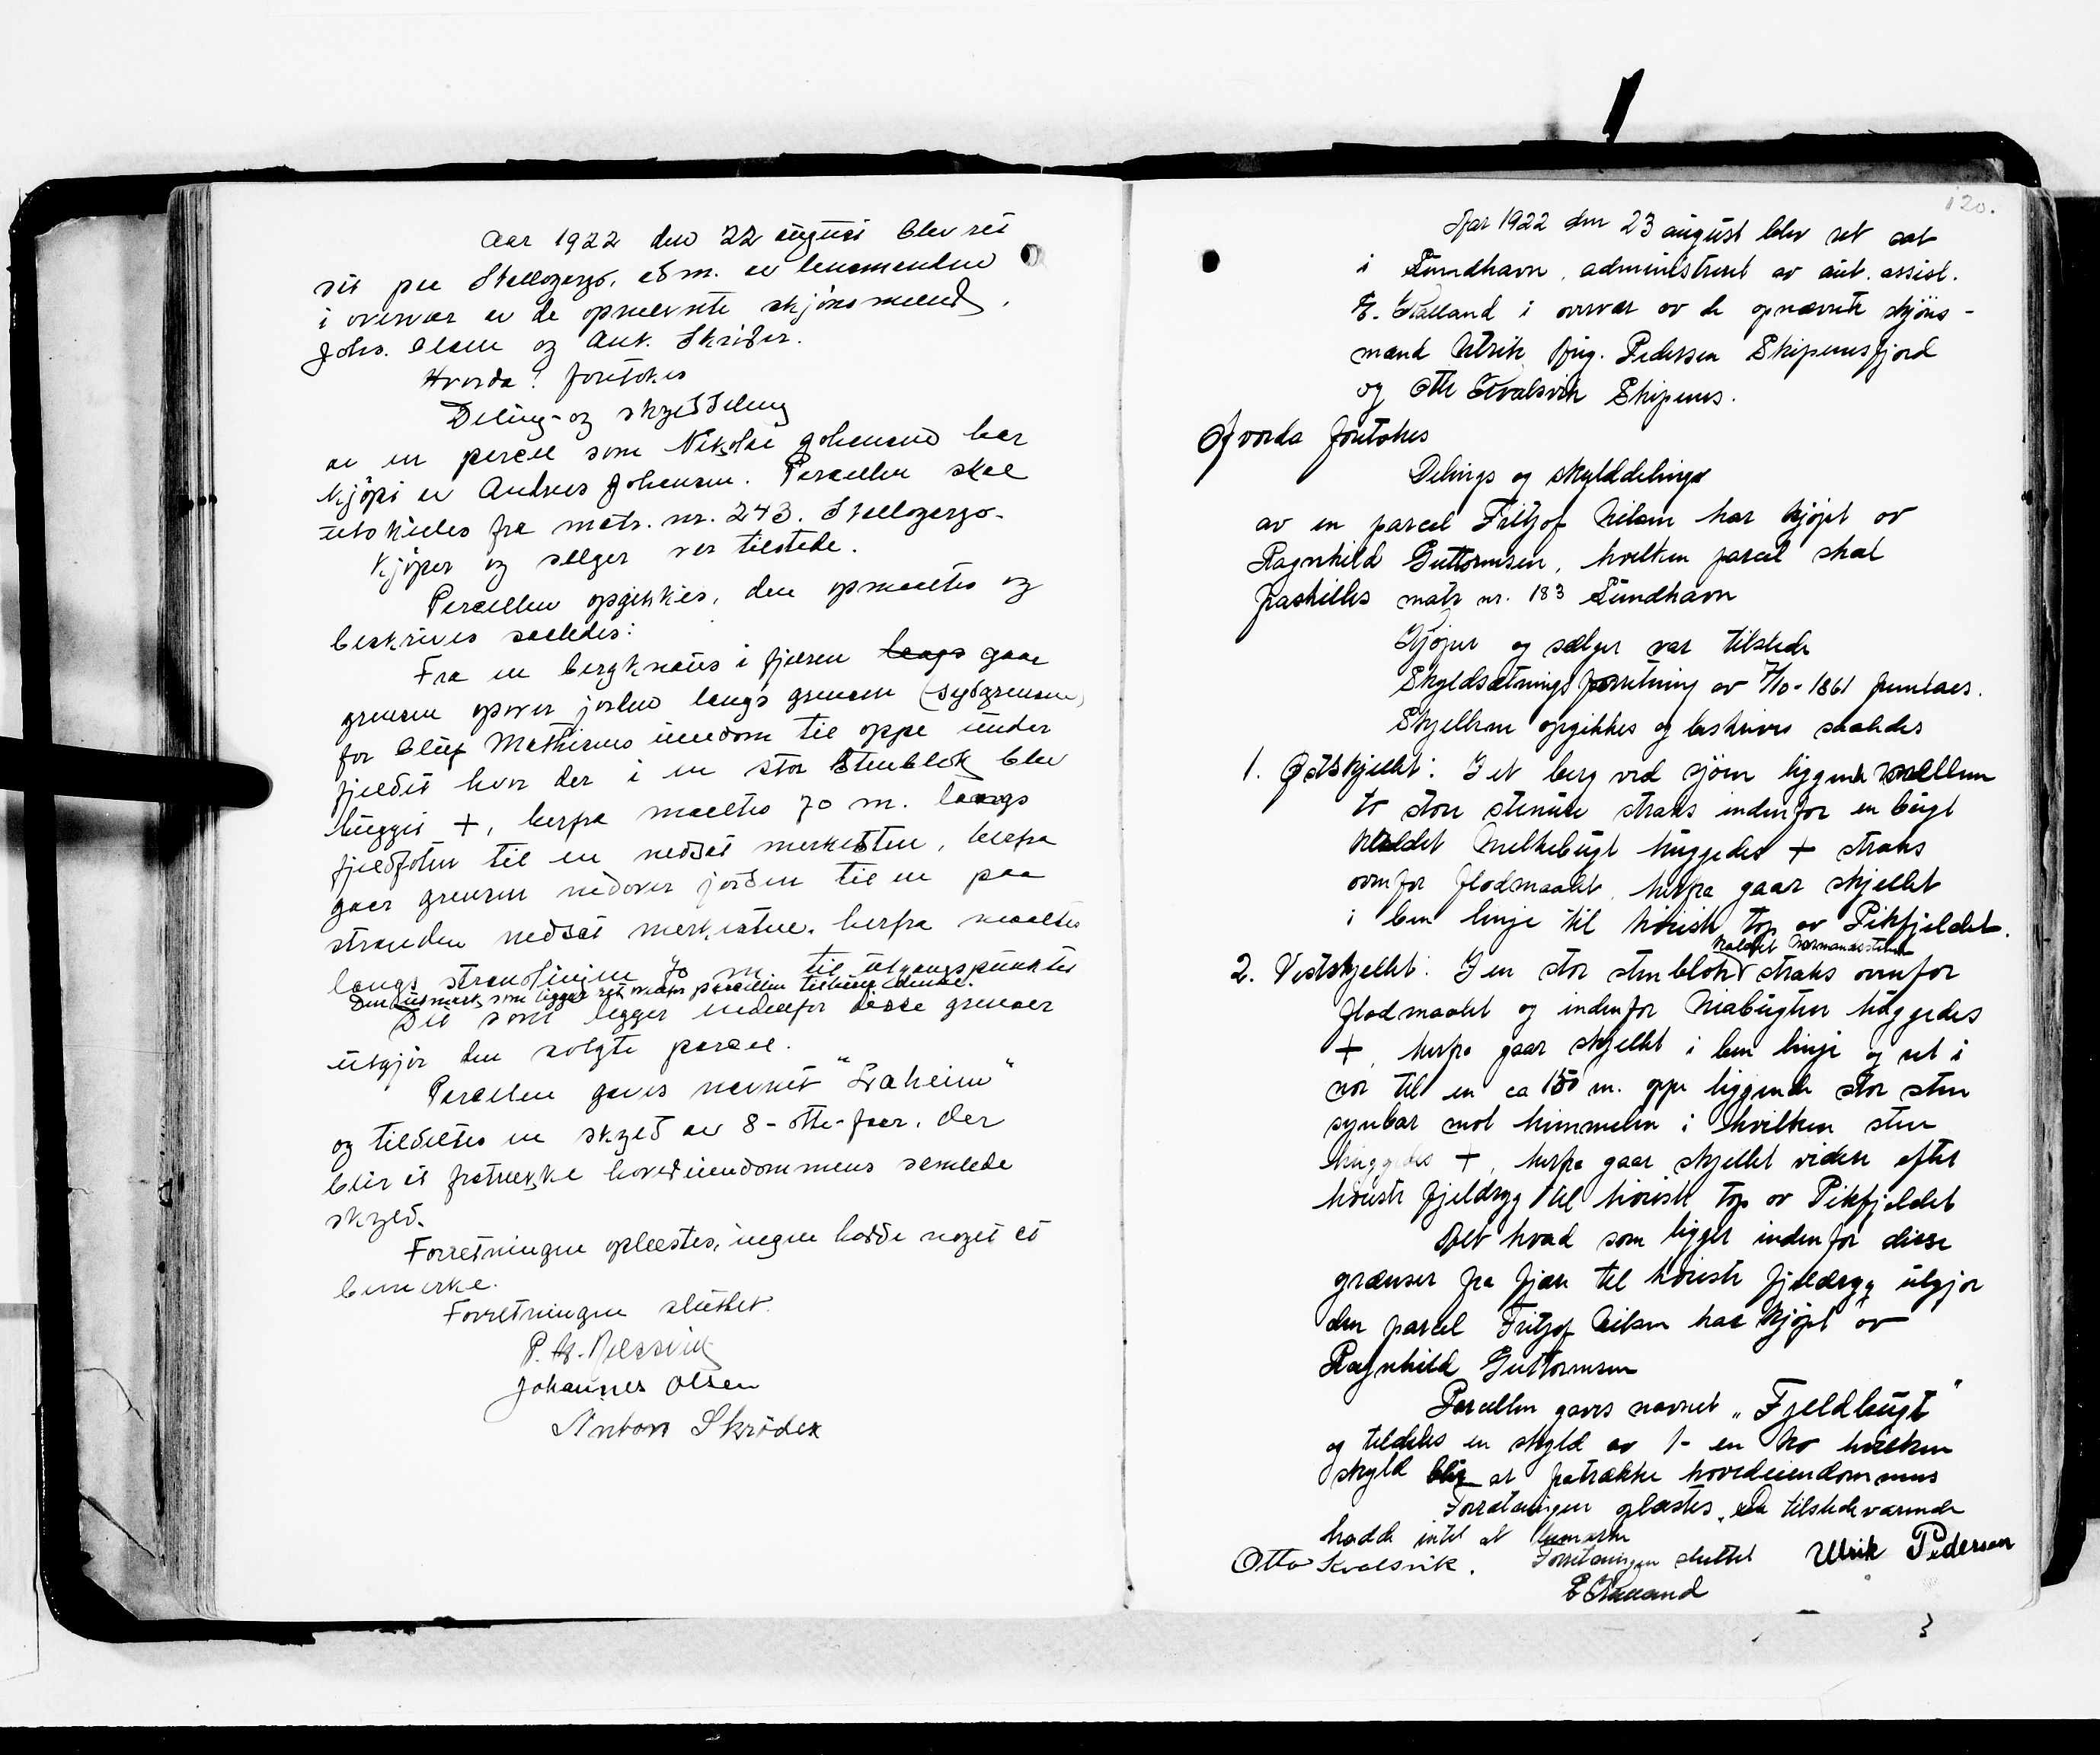 Aar 1922 den 22 august blev ret
sat paa Skellogargo, adm. av lensmanden
i overvær av de opnævnte skjönsmænd,
Johs. Olsen og Ant. Skrider.
Hvorda! foretokes
Deling- og skylddeling
av en parcel som Nikolai Johansen har
kjöpt av Andreas Johansen. Parcellen skal
utskilles fra matr. nr. 243. Skellogargo.
Kjöper og sælger var tilstede.
Parcellen opgikkes, den opmaaltes og
beskrives saaledes:
Fra en bergknaus i fjæren langs gaar
grænsen opover jorden langs grænsen (sydgrænsen)
for Oluf Mathisens eiendom til oppe under
fjeldet hvor der i en stor stenblok blev
hugget +, herfra maaltes 70 m. langs
fjeldfoten til en nedsat merkesten, herfra
gaar grænsen nedover jorden til en paa
stranden nedsat merkesten, herfra maaltes
langs strandlinjen 70 m til utgangspunktet
Den utmark som ligger ret ovenfor parcellen tilhører denne.
Det som ligger indenfor disse grænser
utgjör den solgte parcel.
Parcellen gaves navnet "Soraheim"
og tildeltes en skyld av 8- otte- öer, der
blir at fratrække hovedeiendommens samlede
skyld.
Forretningen oplæstes, ingen hadde noget at
bemerke.
Forretningen sluttet.
Johannes Olsen
Anton Skrider
120.
Aar 1922 den 23 august blev ret sat
i Tundhavn, administrert av aut. assist.
E. Kalland i overvær av de opnævnte skjöns-
mænd Ulrik Aug. Pedersen Skipernesfjord
og Otto Kvalsvik Skipernes.
Hvorda foretokes
Delings og skylddelings
av en parcel Fritjof Nilsen har kjöpt av
Ragnhild Guttormsen, hvilken parcel skal
fraskilles matr nr. 183 Tundhavn
Kjöper og sælger var tilstede
Skyldsætningsforretning av 7/10-1861 fremlaes.
Skjellene opgikkes og beskrives saaledes
1. Østskjellet: I et berg ved sjöen liggende mellem
to store stenurer straks indenfor en bugt
kaldet Melkebugt huggedes + straks
ovenfor flodmaalet, herfra gaar skjellet
i bein linje til höieste top av Pikfjeldet.
kaldet Normandsstenen
2. Vestskjellet: I en stor stenblok straks ovenfor
flodmaalet og indenfor Niabugten huggedes
+, herfra gaar skjellet i ben linje og ret i
nor til en ca 150 m. oppe liggende stor sten
synbar mot himmelen i hvilken sten
huggedes +, herfra gaar skjellet videre efter
höieste fjeldryg til höieste top av Pikfjeldet
Alt hvad som ligger indenfor disse
grænser fra fjære til höieste fjeldryg utgjör
den parcel Fritjof Nilsen har kjöpt av
Ragnhild Guttormsen
Parcellen gaves navnet „Fjeldbugt"
og tildeles en skyld av 1- en kr hvilken
skyld blir at fratrække hovedeiendommens
Forretningen oplæstes. De tilstedeværende
hadde intet at bemærke
Otto Kvalsvik. Forretningen sluttet Ulrik Pedersen
E Kalland